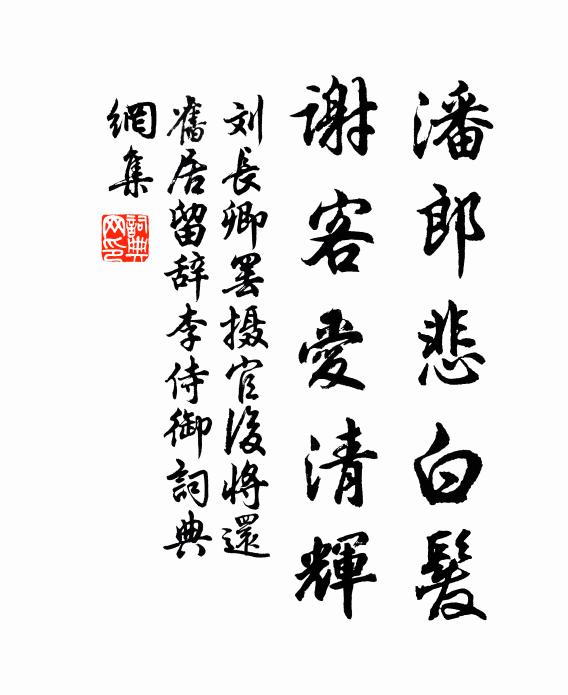 潘郎悲白髮
謝客愛清輝
刘長卿罢摄官後将還
舊居留辞李侍御詞典
網集
詞典
网印